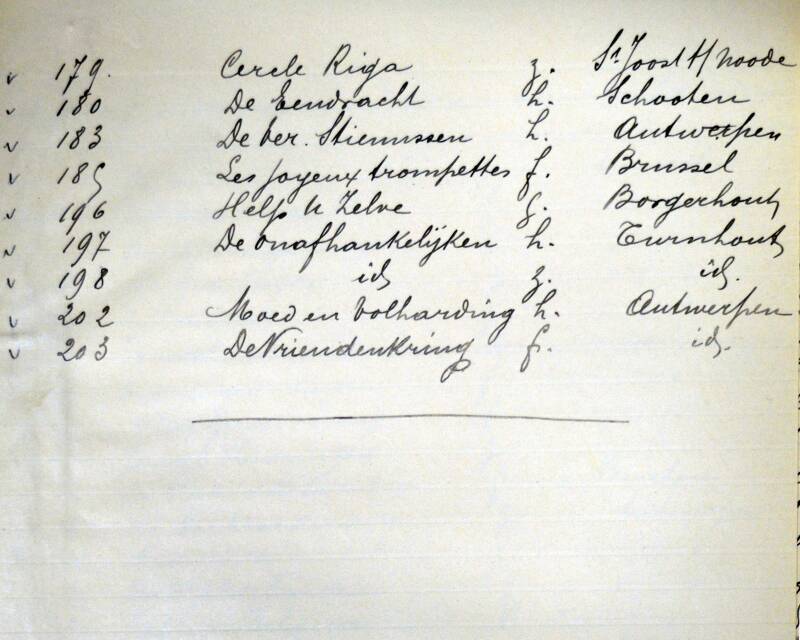 v 179. Cercle Riga z. St Joost t/ Noode
v 180 De Eendracht h. Schooten
v 183 De ver. Stiernissen h. Antwerpen
v 185 Les joyeux trompettes f. Brussel
v 196 Help U Zelve f. Borgerhout
v 197 De Onafhankelijken h. Turnhout
v 198 id z. id.
v 202 Moed en Volharding h. Antwerpen
v 203 De Vriendenkring f. id.